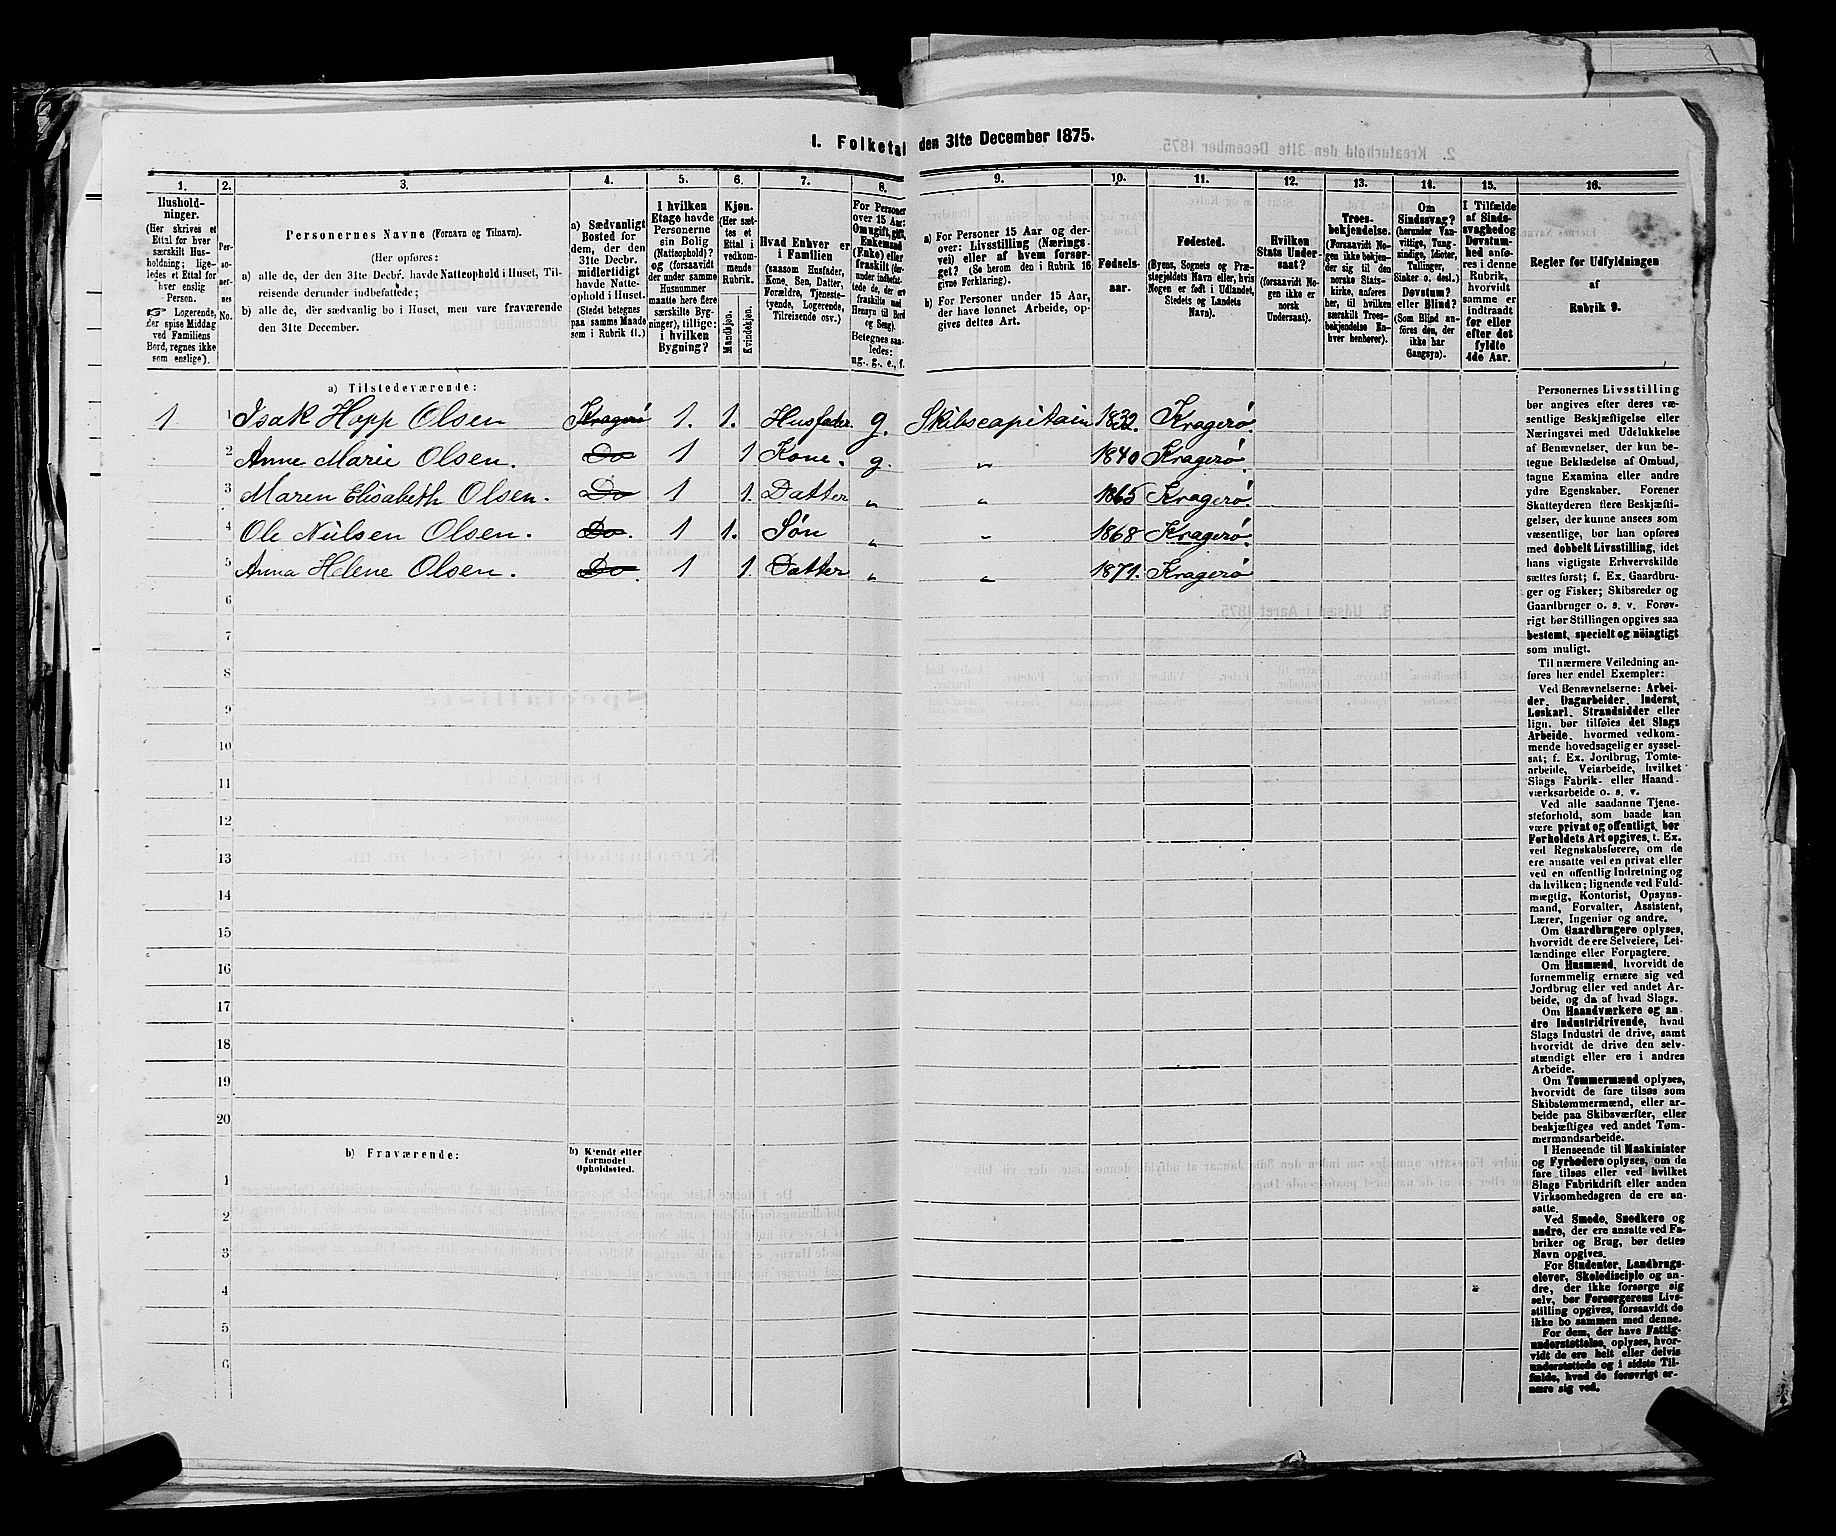 I. Folketal den 31te December 1875.
1. 2. 3. 4. 5. 6. 7. 8. 9. 10. 11. 12. 13. 14. 15. 16.
Hushold-
ninger.
(Her skrives et
Ettal for hver
særskilt Hus-
holdning; lige-
ledes et Ettal for
hver enslig
Person.
☞ Logerende,
der spise Middag
ved Familiens
Bord, regnes ikke
som enslige).
Per-
so-
ner-
nes
No.
Personernes Navne (Fornavn og Tilnavn).
(Her opføres:
a) alle de, der den 31te Decbr. havde Natteophold i Huset, Til-
reisende derunder indbefattede;
b) alle de, der sædvanlig bo i Huset, men vare fraværende
den 31te December.
a) Sædvanligt
Bosted for
dem, der den
31te Decbr.
midlertidigt
havde Natte-
ophold i Huset.
(Stedet betegnes
paa samme Maade
som i Rubrik 11.)
I hvilken
Etage havde
Personerne
sin Bolig
(Natteophold)?
og (forsaavidt
der under samme
Husnummer
maatte høre flere
særskilte Byg-
ninger), tillige:
i hvilken
Bygning?
Kjøn.
(Her sæt-
tes et
Ettal i
vedkom-
mende
Rubrik.
Mandkjøn.
Kvindekjøn.
Hvad Enhver er
i Familien
(saasom Husfader,
Kone, Søn, Datter,
Forældre, Tjeneste-
tyende, Logerende,
Tilreisende osv.)
For Personer
over 15 Aar:
Om ugift, gift,
Enkemand
(Enke) eller
fraskilt (der-
under indbefat-
tede de, der ere
fraskilte med
Hensyn til Bord
og Seng).
Betegnes saa-
ledes:
ug., g., e., f.
a) For Personer 15 Aar og der-
over: Livsstilling (Nærings-
vei) eller af hvem forsør-
get? (Se herom den i Rubrik 16
givne Forklaring).
b) For Personer under 15 Aar,
der have lønnet Arbeide, op-
gives dettes Art.
Fødsels-
aar.
Fødested.
(Byens, Sognets og Præ-
stegjeldets Navn eller, hvis
Nogen er født i Udlandet,
Stedets og Landets
Navn).
Hvilken
Stats Under-
saat?
(forsaavidt No-
gen ikke er
norsk
Undersaat).
Troes-
bekjendelse.
(Forsaavidt No-
gen ikke bekjen-
der sig til den
norske Stats-
kirke, anføres
her, til hvilken
særskilt Troes-
bekjendelse En-
hver henhører).
Om
Sindssvag?
(herunder Van-
vittige, Tung-
sindige, Idioter,
Tullinger,
Sinker o. desl.)
Døvstum?
eller Blind?
(Som Blind an-
føres den, der
ikke har
Gangsyn).
I Tilfælde
af Sinds-
svaghed og
Døvstum-
hed anfø-
res i denne
Rubrik,
hvorvidt
samme er
indtraadt
før eller
efter det
fyldte
4de Aar.
Regler for Udfyldningen
af
Rubrik 9.
a) Tilstedeværende:
1 1 Isak Hopp Olsen Kragerø 1. 1. Husfader g. Skibscapitain 1832. Kragerø.
2 Anne Marie Olsen. Do 1 1 Kone. g. „ 1840 Kragerø.
3 Maren Elisabeth Olsen. Do 1 1. Datter „ „ 1865 Kragerø.
4 Ole Nielsen Olsen. Do. 1 1. Søn „ „ 1868 Kragerø.
5 Anna Helene Olsen. Do. 1 1. Datter „ „ 1871. Kragerø
6
7
8
9
10
11
12
13
14
15
16
17
18
19
20
b) Fraværende:
b) Kjendt eller
formodet
Opholdssted.
1
2
3
4
5
6
Personernes Livsstilling
bør angives efter deres væ-
sentlige Beskjæftigelse eller
Næringsvei med Udelukkelse
af Benævnelser, der kun be-
tegne Beklædelse af Ombud,
tagne Examina eller andre
ydre Egenskaber. Forener
Skatteyderen flere Beskjæfti-
gelser, der kunne ansees som
væsentlige, bør han opføres
med dobbelt Livsstilling, idet
hans vigtigste Erhvervskilde
sættes først; f. Ex. Gaardbru-
ger og Fisker; Skibsreder og
Gaardbruger o. s. v. Forøv-
rigt bør Stillingen opgives saa
bestemt, specielt og nøiagtigt
som muligt.
Til nærmere Veiledning an-
føres her endel Exempler:
Ved Benævnelserne: Arbei-
der, Dagarbeider, Inderst,
Løskarl, Strandsidder eller
lign. bør tilføies det Slags
Arbeide, hvormed vedkom-
mende hovedsagelig er syssel-
sat; f. Ex. Jordbrug, Tomte-
arbeide, Veiarbeide, hvilket
Slags Fabrik- eller Haand-
værksarbeide o. s. v.
Ved alle saadanne Tjene-
steforhold, som baade kan
være privat og offentligt, bør
Forholdets Art opgives, t. Ex.
ved Regnskabsførere, om de
ere ansatte ved en privat eller
ved en offentlig Indretning og
da hvilken; lignende ved Fuld-
mægtig, Kontorist, Opsyns-
mand, Forvalter, Assistent,
Lærer, Ingeniør og andre.
Om Gaardbrugere oplyses,
hvorvidt de ere Selveiere, Lei-
lændinge eller Forpagtere.
Om Husmænd, hvorvidt de
fornemmelig ernære sig ved
Jordbrug eller ved andet Ar-
beide, og da af hvad Slags.
Om Haandværkere og an-
dre Industridrivende, hvad
Slags Industri de drive, samt
hvorvidt de drive den selv-
stændigt eller ere i andres
Arbeide.
Om Tømmermænd oplyses,
hvorvidt de fare tilsøs som
Skibstømmermænd, eller ar-
beide paa Skibsværfter, eller
beskjæftiges ved andet Tøm-
mermandsarbeide.
I Henseende til Maskinister
og Fyrbødere oplyses, om de
fare tilsøs eller ved hvilket
Slags Fabrikdrift eller anden
Virksomhedsgren de ere an-
satte.
Ved Smede, Snedkere og
andre, der ere ansatte ved Fa-
briker og Brug, bør dettes
Navn opgives.
For Studenter, Landbrugs-
elever, Skoledisciple og an-
dre, der ikke forsørge sig
selv, bør Forsørgerens Livs-
stilling opgives, forsaavidt de
ikke bo sammen med denne.
For dem, der have Fattig-
understøttelse, oplyses, hvor-
vidt de ere helt eller delvis
understøttede og i sidste Til-
fælde, hvad de forøvrigt er-
nære sig ved.